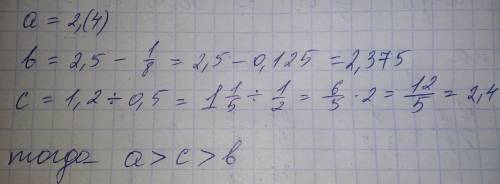 a = 2,(4)
b = 2,5 - 1/8 = 2,5 - 0,125 = 2,375
c = 1,2 ÷ 0,5 = 1 1/5 ÷ 1/2 = 6/5 · 2 = 12/5 = 2,4
тогда a > c > b